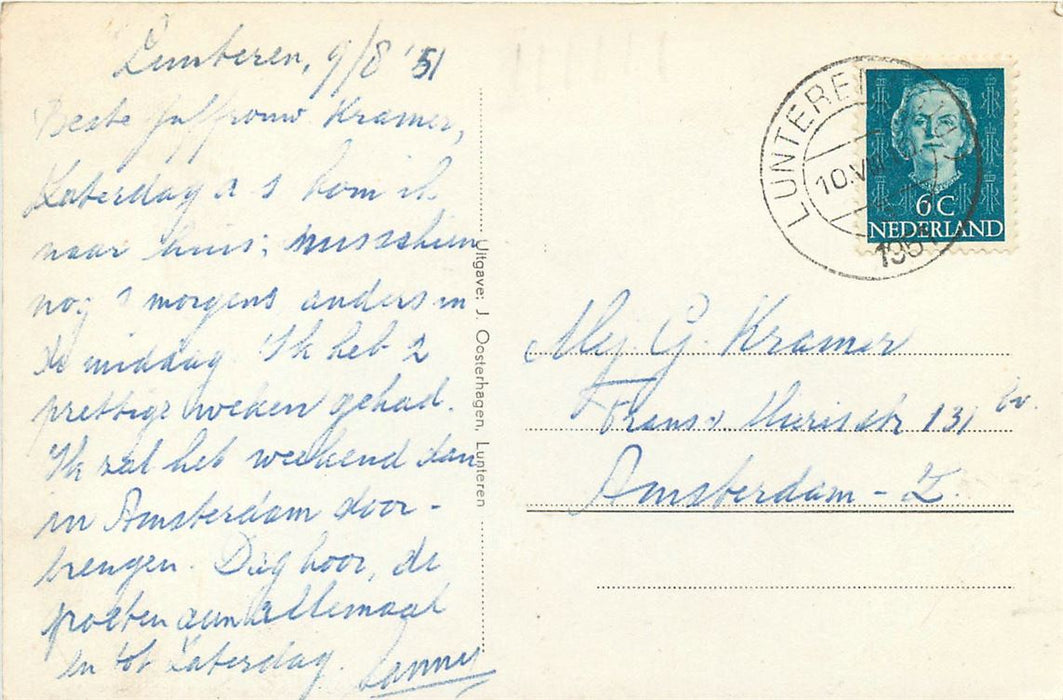 Lunteren, 9/8 '51
Beste Juffrouw Kramer,
Zaterdag a s kom ik
naar huis; misschien
nog 's morgens anders in
de middag. Ik heb 2
prettige weken gehad.
Ik zal het weekend dan
in Amsterdam door-
brengen. Dag hoor, de
groeten aan allemaal
en tot Zaterdag.
Uitgave: J. Oosterhagen, Lunteren
LUNTEREN
10.VIII
1951
6C
NEDERLAND
Mej. G. Kramer
Frans v Mierisstr 131 bv.
Amsterdam - Z.